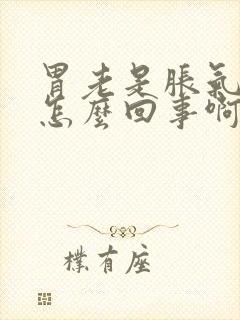 胃老是脹氣
怎麼回事啊
樸有座